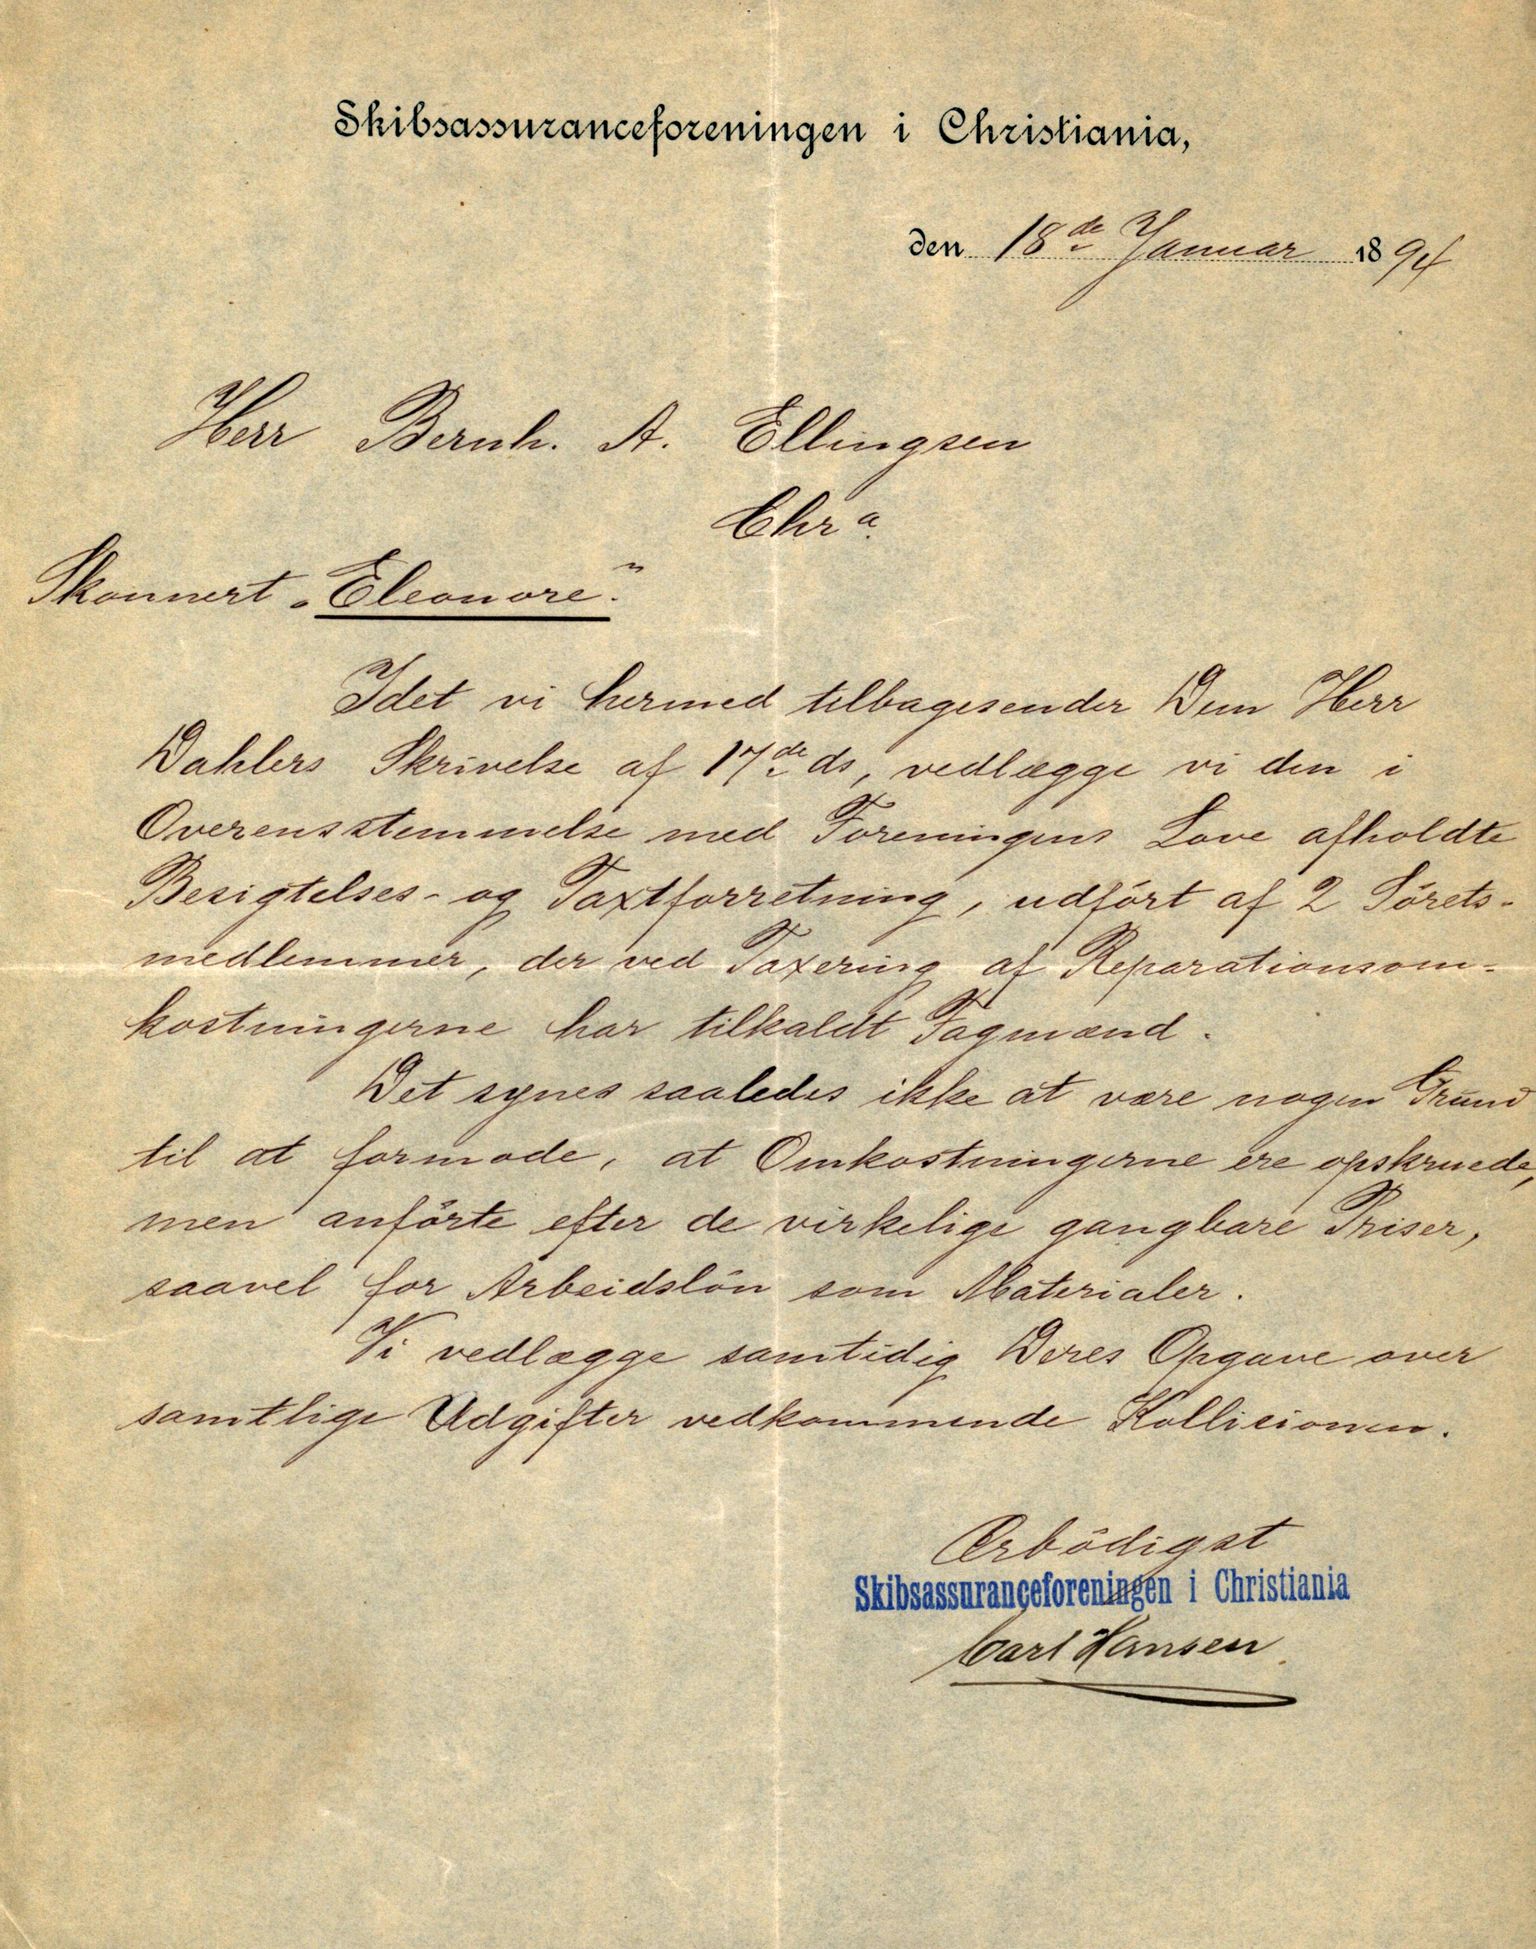 Skibsassuranceforeningen i Christiania,
den 18de Januar 1894
Herr Bernh. A. Ellingsen
Chra.
Skonnert „Eleonore".
Idet vi hermed tilbagesender Dem Herr
Dahlers Skrivelse af 17de ds, vedlægge vi den i
Overensstemmelse med Foreningens Love afholdte
Besigtelses- og Taxtforretning, udført af 2 Sørets-
medlemmer, der ved Taxering af Reparationsom-
kostningerne har tilkaldt Fagmænd.
Det synes saaledes ikke at være nogen Grund
til at formode, at Omkostningerne ere opskruede,
men anførte efter de virkelige gangbare Priser,
saavel for Arbeidsløn som Materialer.
Vi vedlægge samtidig Deres Opgave over
samtlige Udgifter vedkommende Kollisionen.
Ærbødigst
Skibsassuranceforeningen i Christiania
Carl Hansen